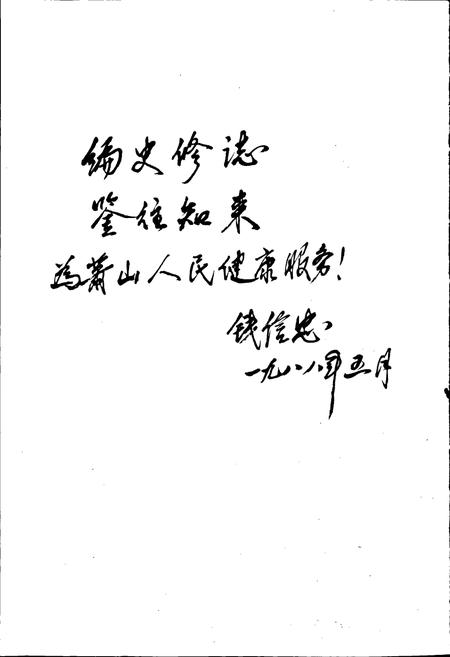 编史修誌
鉴往知来
为萧山人民健康服务!
钱信忠
一九八八年五月